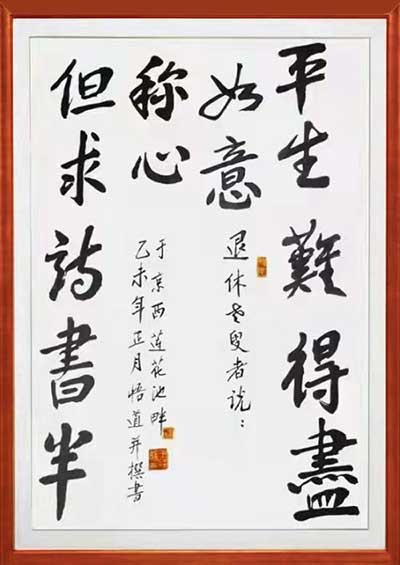 退休老叟者说：
平生難得盡
如意
但求詩書半
称心
于京西莲花池畔
乙未年正月悟道并撰书